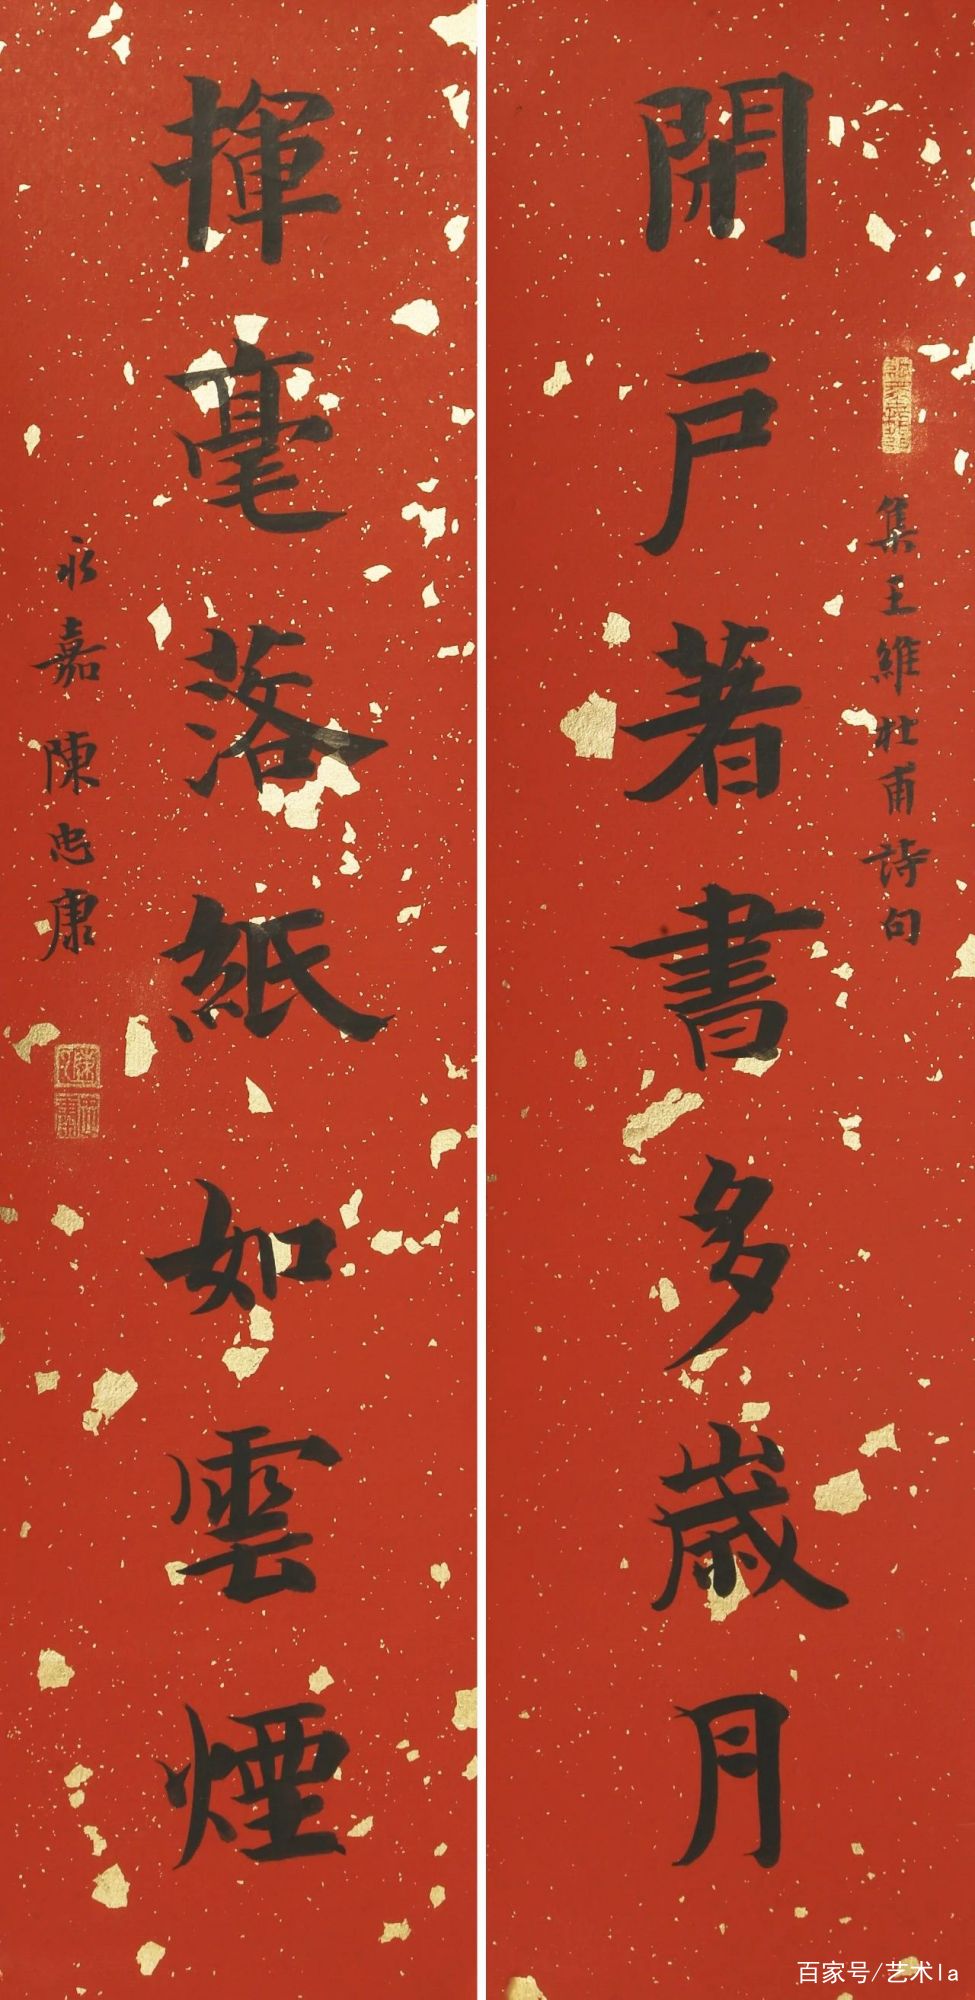 集王維杜甫詩句
開戶著書多歲月
揮毫落紙如雲煙
永嘉陳忠康
百家号/艺术la